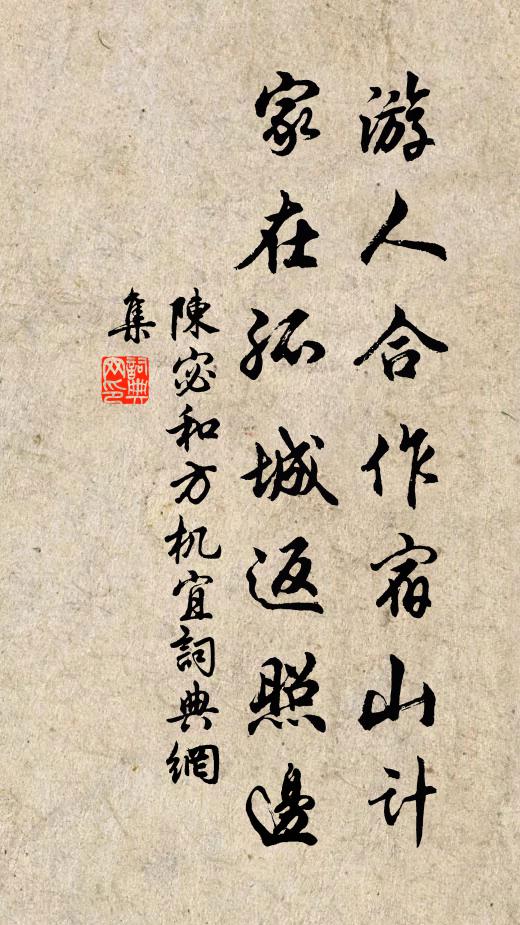 游人合作宿山計
家在孤城返照邊
陳宓和方机宜詞典網
集
詞典
網印